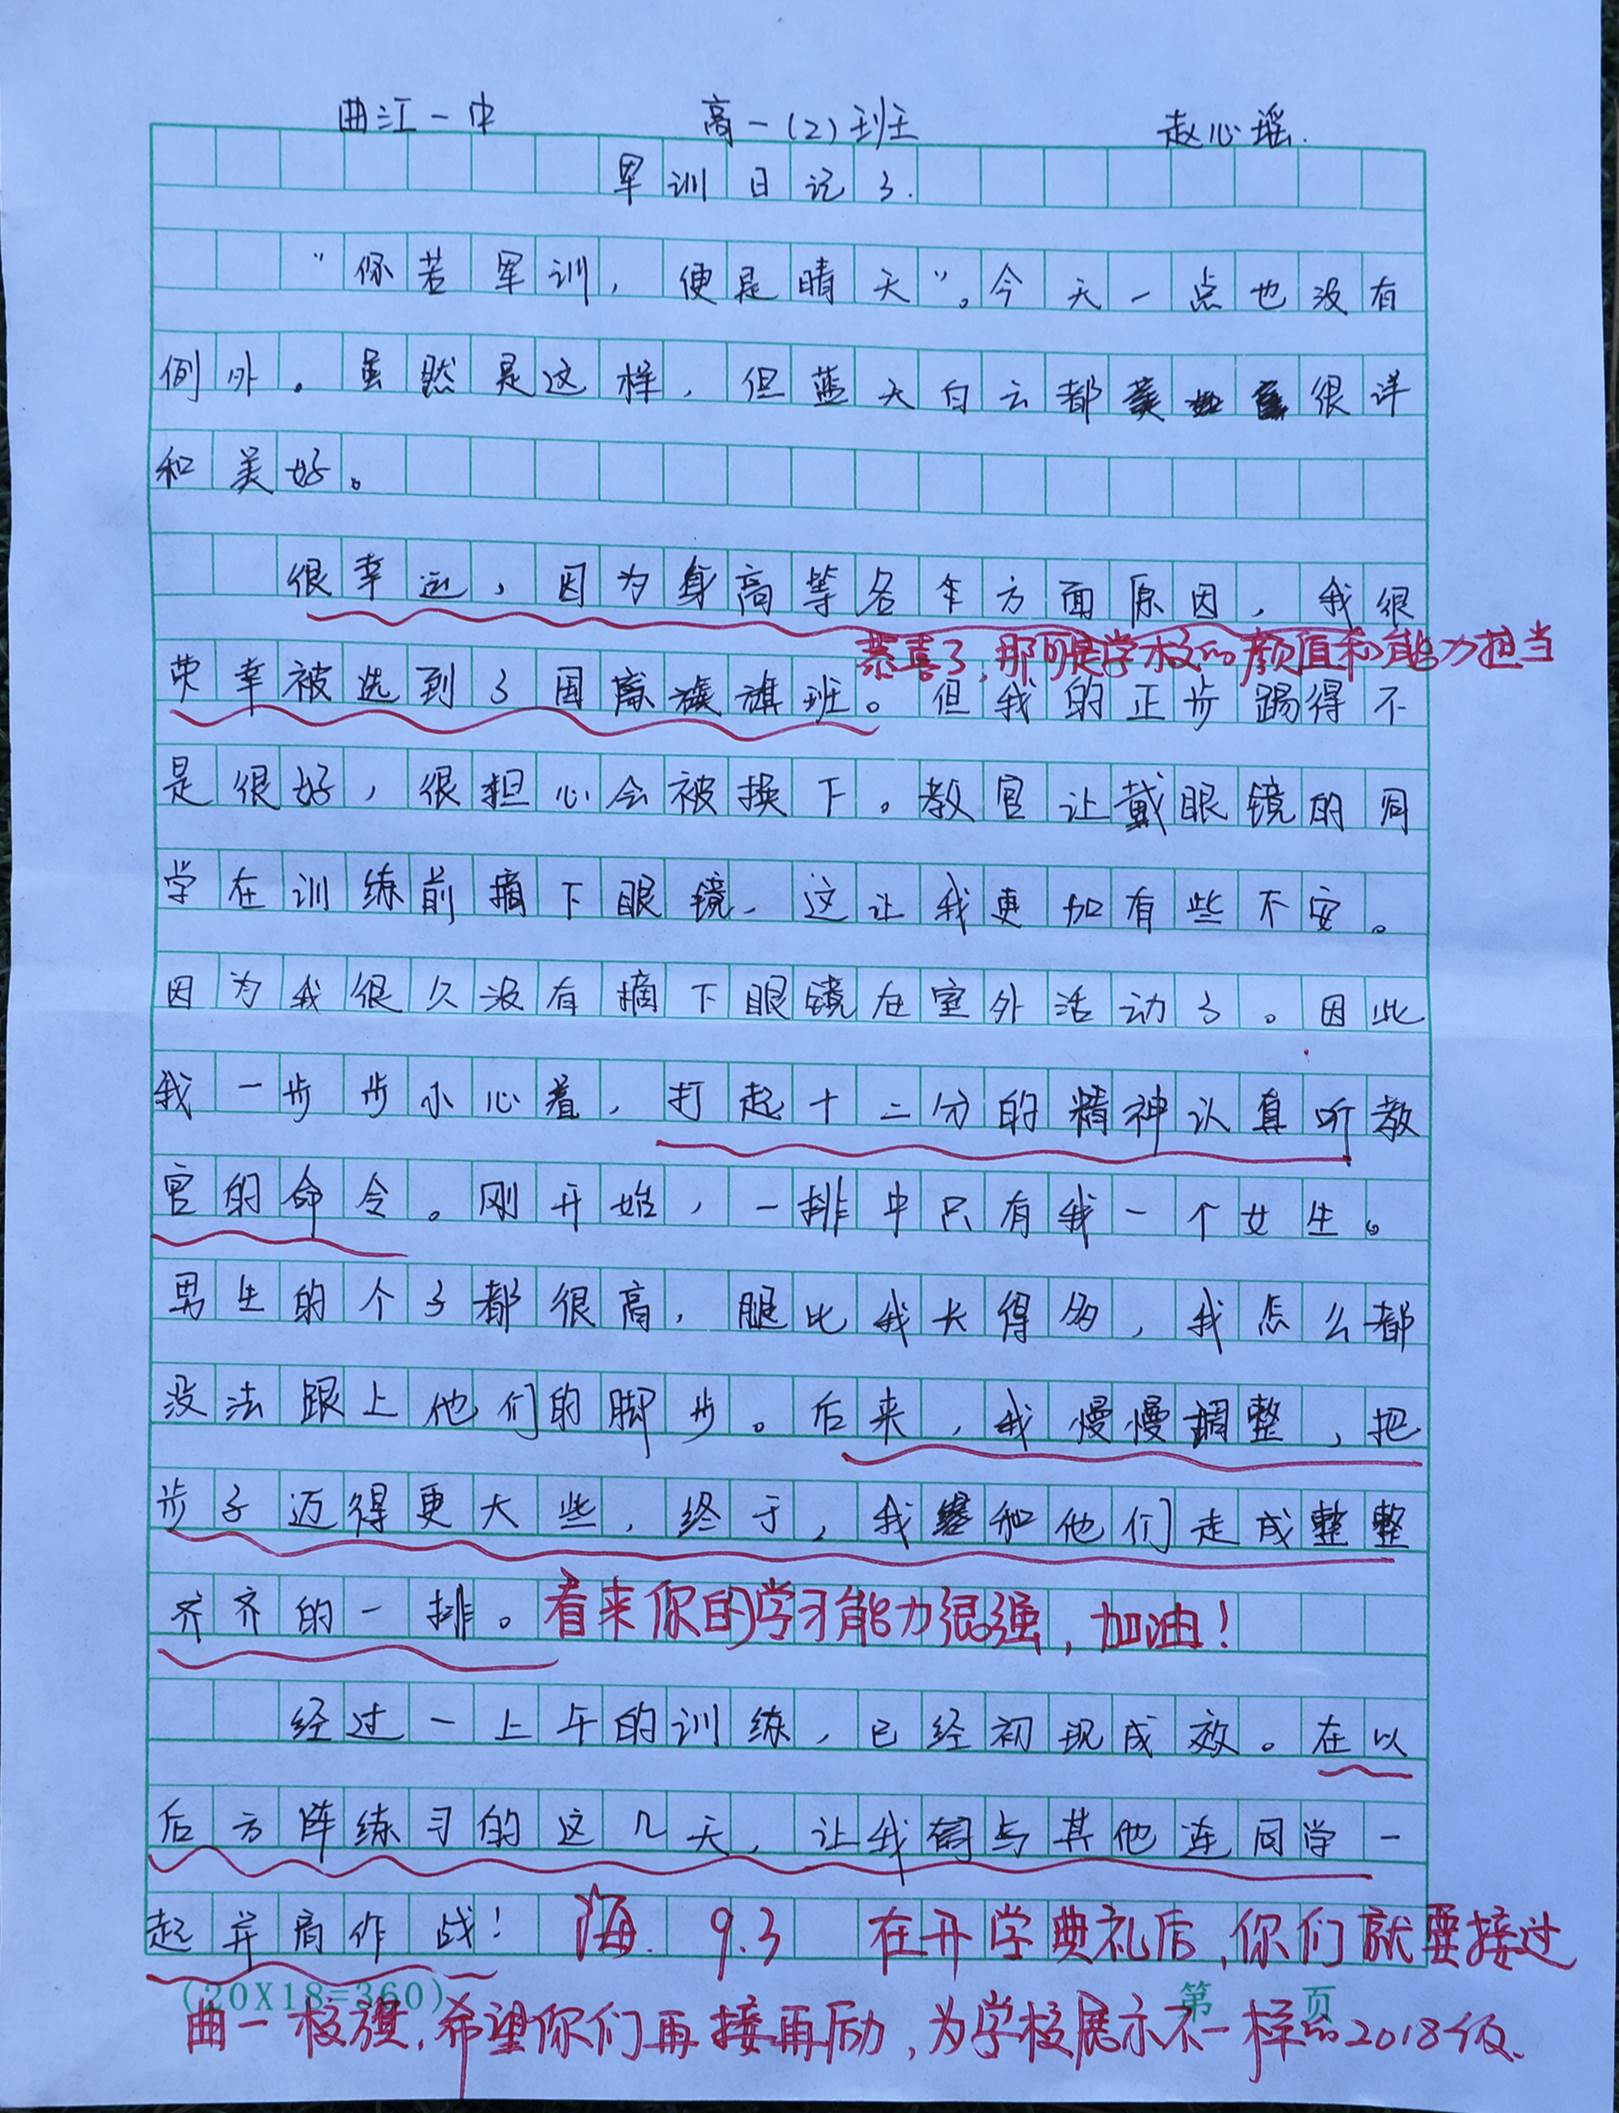 曲江一中 高一(2)班 赵心瑶.
军训日记3.
“你若军训，便是晴天”。今天一点也没有
例外。虽然是这样，但蓝天白云都很详
和美好。
很幸运，因为身高等各方面原因，我很
恭喜了，那可是学校的颜值和能力担当
荣幸被选到了国旗班。但我的正步踢得不
是很好，很担心会被换下。教官让戴眼镜的同
学在训练前摘下眼镜，这让我更加有些不安。
因为我很久没有摘下眼镜在室外活动了。因此
我一步步小心着，打起十二分的精神认真听教
官的命令。刚开始，一排中只有我一个女生。
男生的个子都很高，腿比我长得多，我怎么都
没法跟上他们的脚步。后来，我慢慢调整，把
步子迈得更大些，终于，我和他们走成整整
齐齐的一排。看来你的学习能力很强，加油！
经过一上午的训练，已经初现成效。在以
后方阵练习的这几天，让我们与其他连同学一
起并肩作战！ 海. 9.3 在开学典礼后，你们就要接过
(20X18=360) 第 页
曲一校旗，希望你们再接再励，为学校展示不一样的2018级.